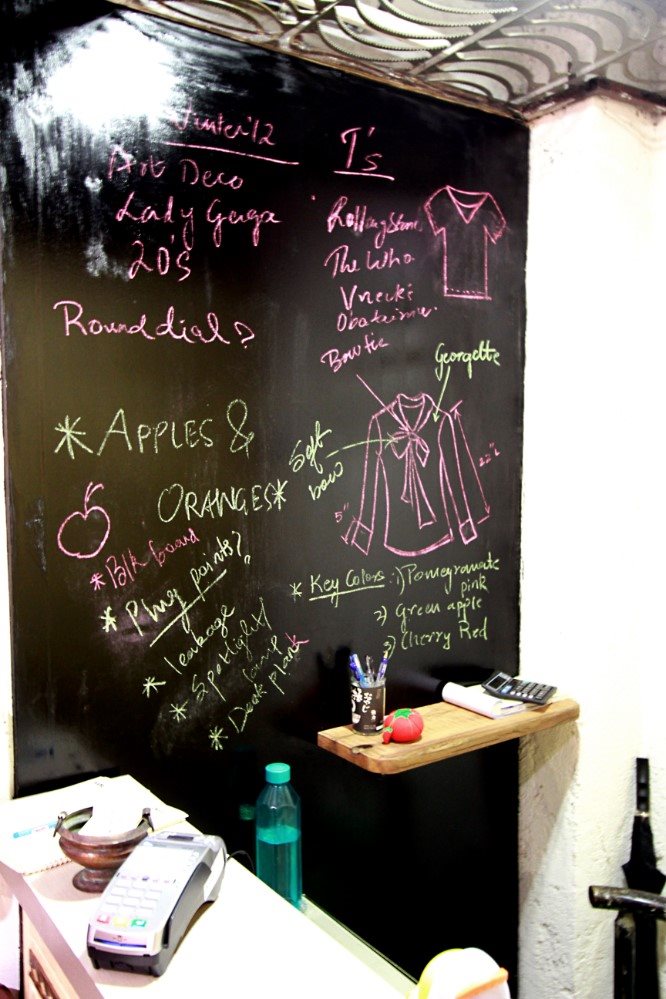 Winter'12
Art Deco
Lady Gaga
20's
Round dial?
T's
Rolling Stones
The Who
Vneck's
Bowtie
Georgette
Soft
bow
22"L
5"
*APPLES &
ORANGES*
* Blk board
* Plug points?
* leakage
* Spotlight/
lamp
* Desk plank
* Key Colors :1) Pomegranate
pink
2) Green apple
3) Cherry Red